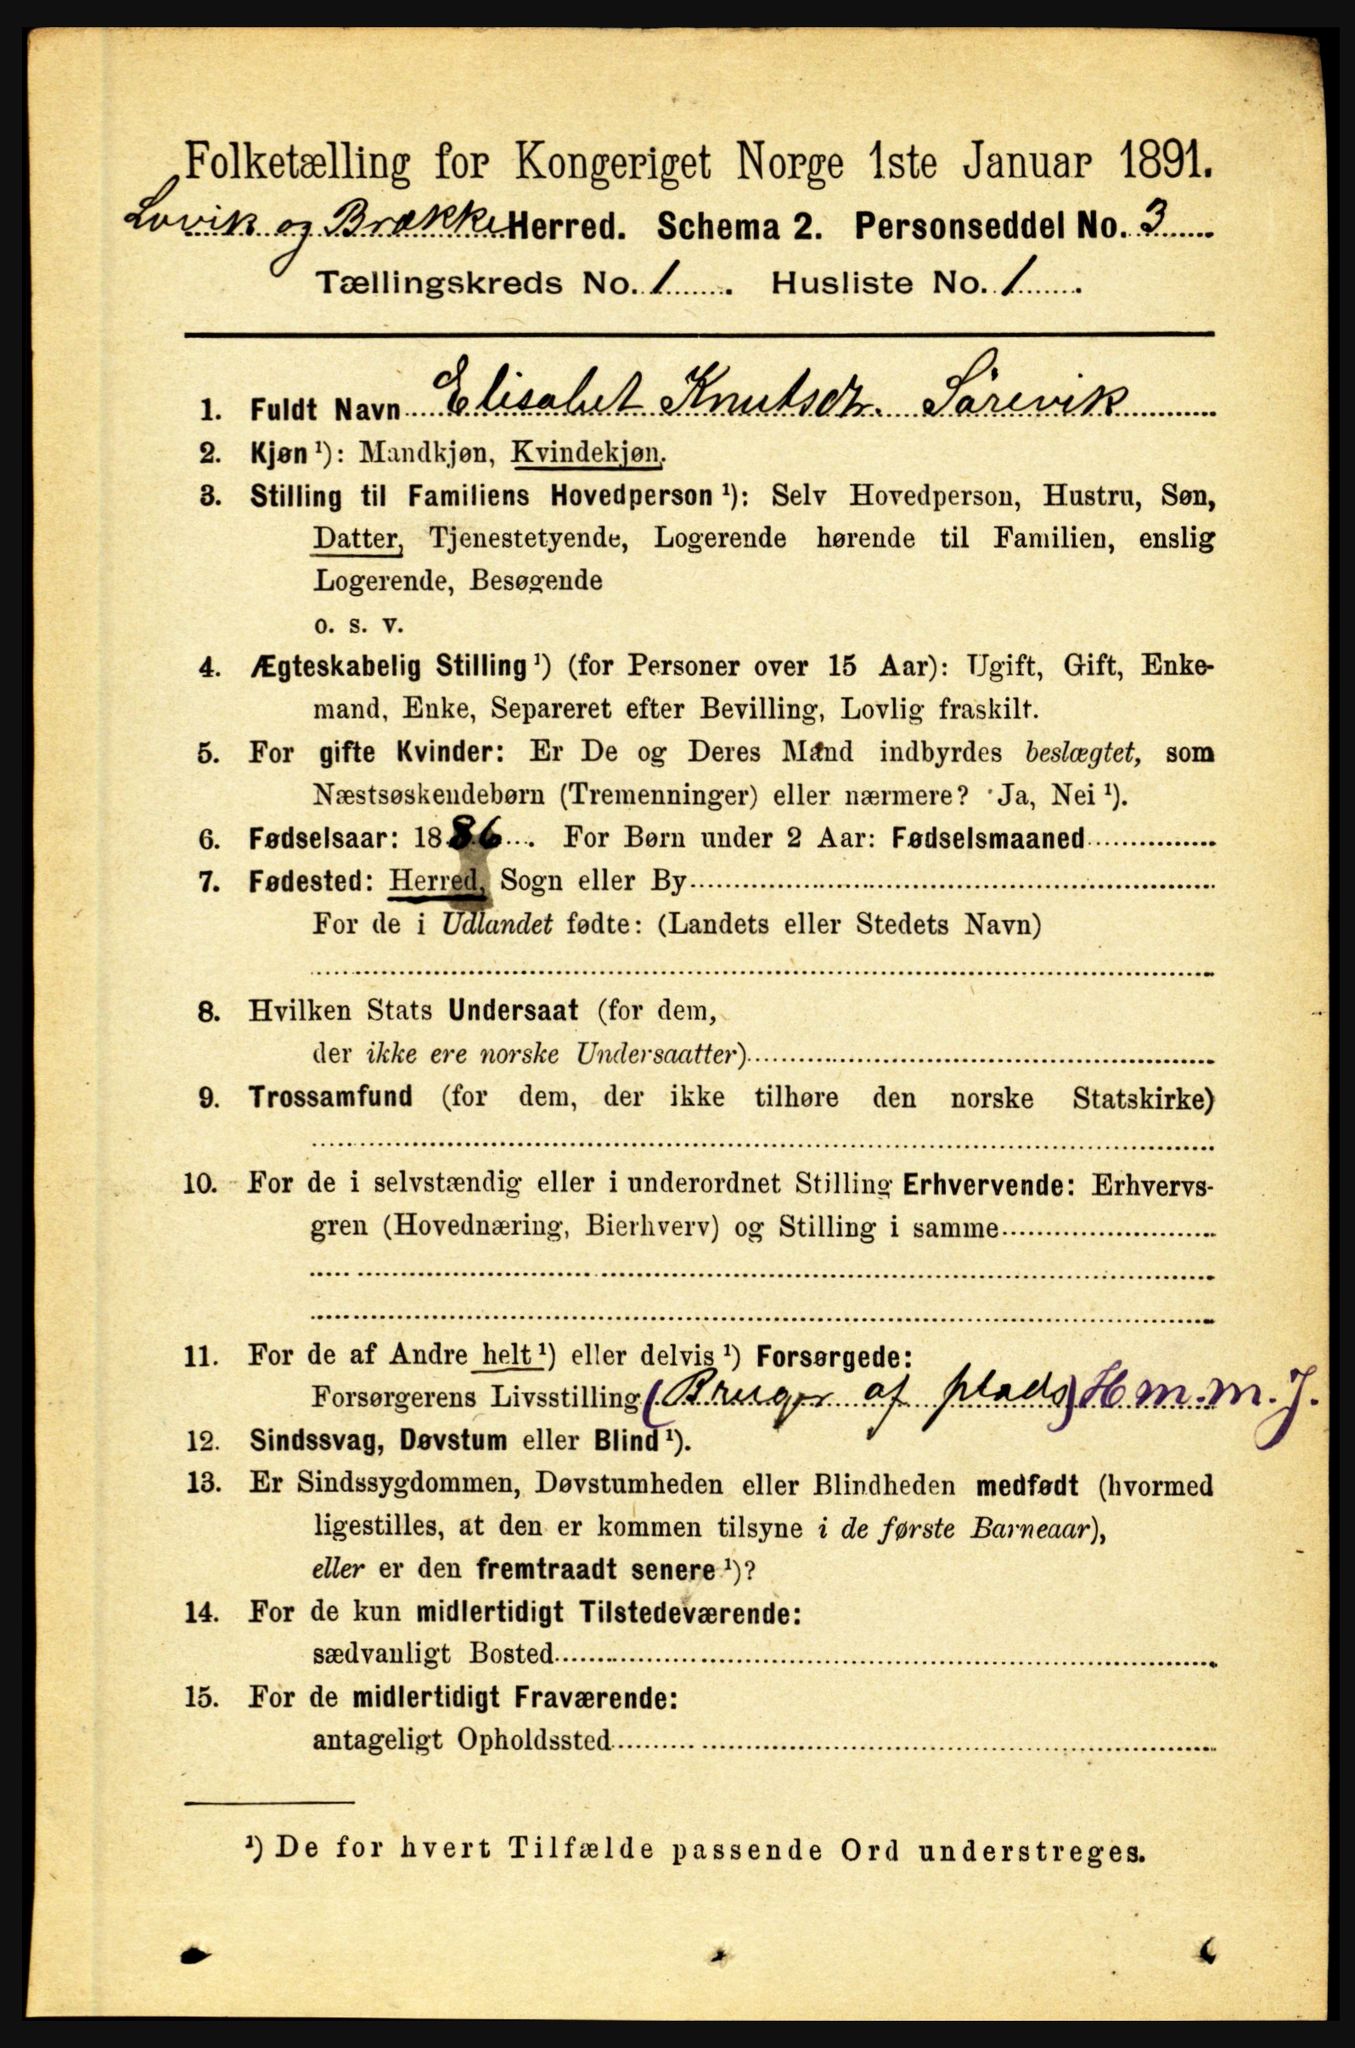 Folketælling for Kongeriget Norge 1ste Januar 1891.
Lavik og Brække Herred. Schema 2. Personseddel No. 3
Tællingskreds No. 1. Husliste No. 1.
1. Fuldt Navn Elisabet Knutsdt. Sörevik
2. Kjøn¹): Mandkjøn, Kvindekjøn.
3. Stilling til Familiens Hovedperson¹): Selv Hovedperson, Hustru, Søn,
Datter, Tjenestetyende, Logerende hørende til Familien, enslig
Logerende, Besøgende
o. s. v.
4. Ægteskabelig Stilling¹) (for Personer over 15 Aar): Ugift, Gift, Enke-
mand, Enke, Separeret efter Bevilling, Lovlig fraskilt.
5. For gifte Kvinder: Er De og Deres Mand indbyrdes beslægtet, som
Næstsøskendebørn (Tremenninger) eller nærmere? Ja, Nei¹).
6. Fødselsaar: 1886. For Børn under 2 Aar: Fødselsmaaned
7. Fødested: Herred, Sogn eller By
For de i Udlandet fødte: (Landets eller Stedets Navn)
8. Hvilken Stats Undersaat (for dem,
der ikke ere norske Undersaatter)
9. Trossamfund (for dem, der ikke tilhøre den norske Statskirke)
10. For de i selvstændig eller i underordnet Stilling Erhvervende: Erhvervs-
gren (Hovednæring, Bierhverv) og Stilling i samme
11. For de af Andre helt¹) eller delvis¹) Forsørgede:
Forsørgerens Livsstilling (Bruger af plads) H m. m. J.
12. Sindssvag, Døvstum eller Blind¹).
13. Er Sindssygdommen, Døvstumheden eller Blindheden medfødt (hvormed
ligestilles, at den er kommen tilsyne i de første Barneaar),
eller er den fremtraadt senere¹)?
14. For de kun midlertidigt Tilstedeværende:
sædvanligt Bosted
15. For de midlertidigt Fraværende:
antageligt Opholdssted
¹) De for hvert Tilfælde passende Ord understreges.